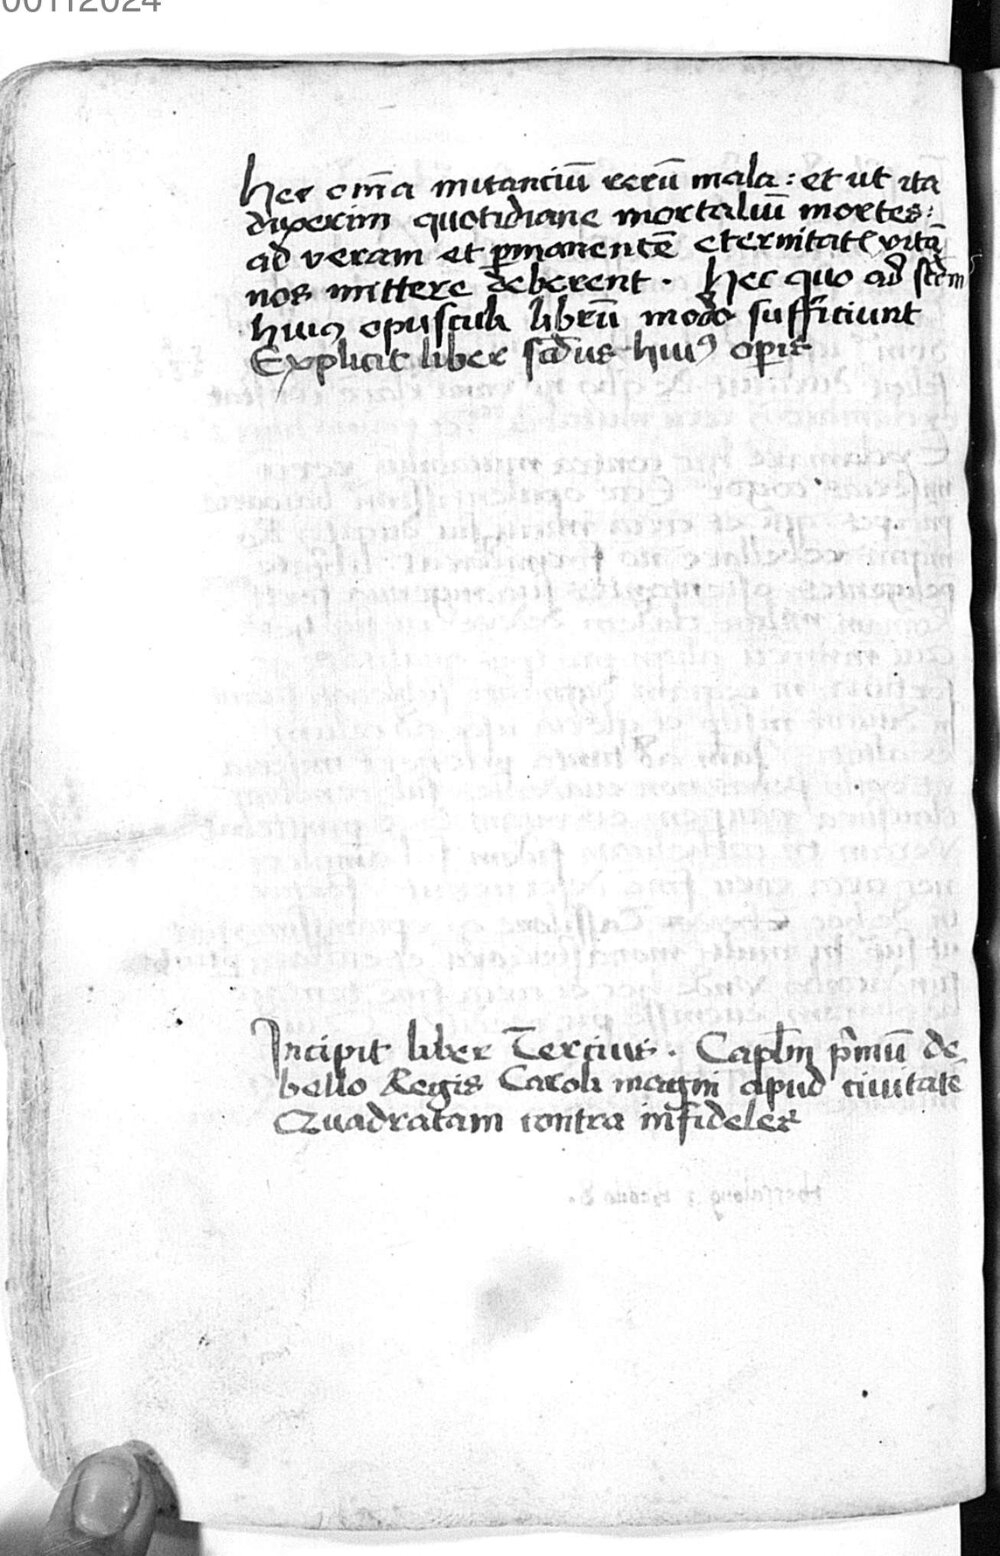 00112024
hec om̄a mutanciū rerū mala : et ut ita
dixerim quotidiane mortaliū mortes :
ad veram et p̱manentē eternitatē vitā
nos mittere deberent . Hec quo ad scd̄m
huiꝰ opusculi librū modo sufficiunt
Explicit liber scd̄us huiꝰ op̱is
Incipit liber Tercius . Capl̄m p̄mū de
bello Regis Caroli magni apud civitatē
Quadratam contra infideles